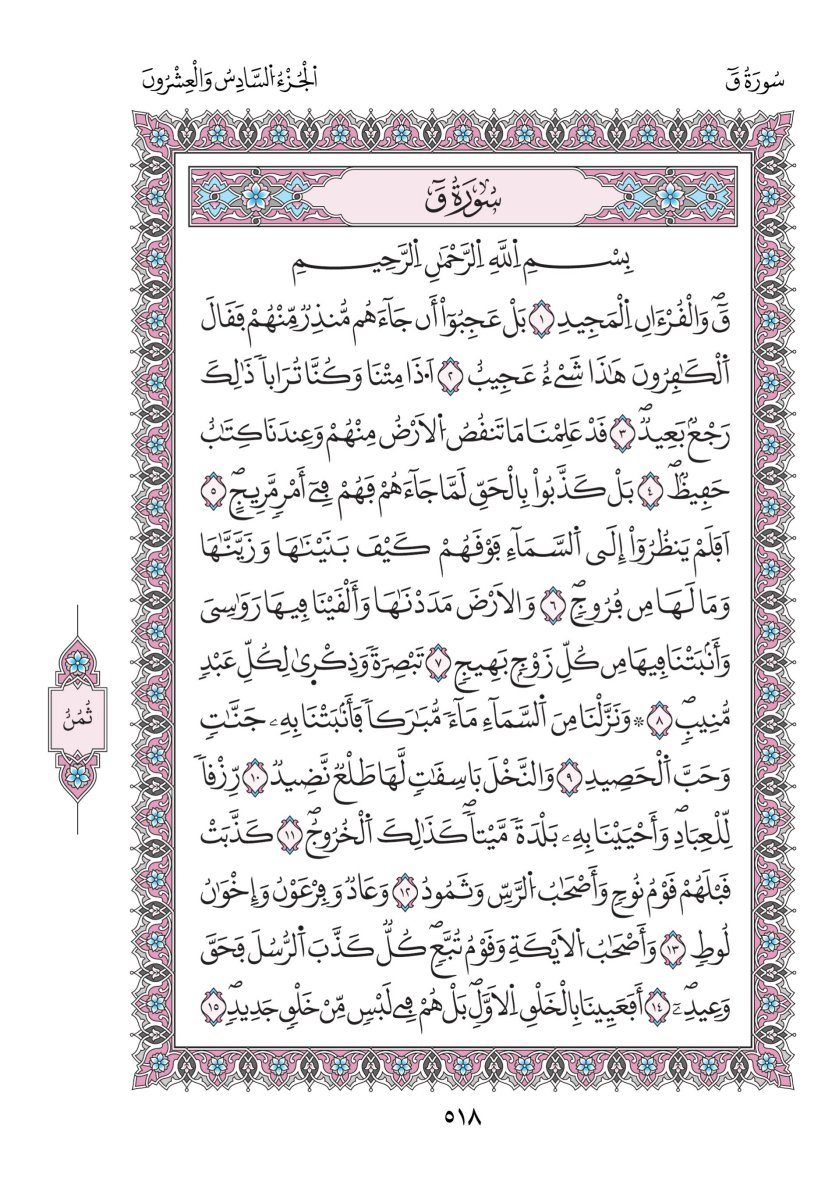 سُورَةُ قٓ
اَ۬لْجُزْءُ اُ۬لسَّادِسُ وَالْعِشْرُونَ
سُورَةُ قٓ
بِسْمِ اِ۬للَّهِ اِ۬لرَّحْمَٰنِ اِ۬لرَّحِيمِ
قٓۖ وَالْقُرْءَانِ اِ۬لْمَجِيدِ ١ بَلْ عَجِبُوٓاْ أَن جَآءَهُم مُّنذِرٞ مِّنْهُمْ فَقَالَ
اَ۬لْكَٰفِرُونَ هَٰذَا شَےْءٌ عَجِيبٌ ٢ اَ۟ذَا مِتْنَا وَكُنَّا تُرَاباٗ ذَٰلِكَ
رَجْعُۢ بَعِيدٞۖ ٣ قَدْ عَلِمْنَا مَا تَنقُصُ اُ۬لَارْضُ مِنْهُمْ وَعِندَنَا كِتَٰبٌ
حَفِيظٞۖ ٤ بَلْ كَذَّبُواْ بِالْحَقِّ لَمَّا جَآءَهُمْ فَهُمْ فِےٓ أَمْرٖ مَّرِيجٍۖ ٥
اَفَلَمْ يَنظُرُوٓاْ إِلَى اَ۬لسَّمَآءِ فَوْقَهُمْ كَيْفَ بَنَيْنَٰهَا وَزَيَّنَّٰهَا
وَمَا لَهَا مِن فُرُوجٖۖ ٦ وَالَارْضَ مَدَدْنَٰهَا وَأَلْقَيْنَا فِيهَا رَوَٰسِيَ
وَأَنۢبَتْنَا فِيهَا مِن كُلِّ زَوْجِۢ بَهِيجٖ ٧ تَبْصِرَةٗ وَذِكْر۪ىٰ لِكُلِّ عَبْدٖ
مُّنِيبٖۖ ٨ ۞ وَنَزَّلْنَا مِنَ اَ۬لسَّمَآءِ مَآءٗ مُّبَٰرَكاٗ فَأَنۢبَتْنَا بِهِۦ جَنَّٰتٖ
وَحَبَّ اَ۬لْحَصِيدِ ٩ وَالنَّخْلَ بَاسِقَٰتٖ لَّهَا طَلْعٞ نَّضِيدٞ ١٠ رِّزْقاٗ
لِّلْعِبَادِۖ وَأَحْيَيْنَا بِهِۦ بَلْدَةٗ مَّيْتاٗۖ كَذَٰلِكَ اَ۬لْخُرُوجُۖ ١١ كَذَّبَتْ
قَبْلَهُمْ قَوْمُ نُوحٖ وَأَصْحَٰبُ اُ۬لرَّسِّ وَثَمُودُ ١٢ وَعَادٞ وَفِرْعَوْنُ وَإِخْوَٰنُ
لُوطٖ ١٣ وَأَصْحَٰبُ اُ۬لَايْكَةِ وَقَوْمُ تُبَّعٖۖ كُلّٞ كَذَّبَ اَ۬لرُّسُلَ فَحَقَّ
وَعِيدِۦۖ ١٤ أَفَعَيِينَا بِالْخَلْقِ اِ۬لَاوَّلِۖ بَلْ هُمْ فِے لَبْسٖ مِّنْ خَلْقٖ جَدِيدٖۖ ١٥
ثُمُنُ
٥١٨